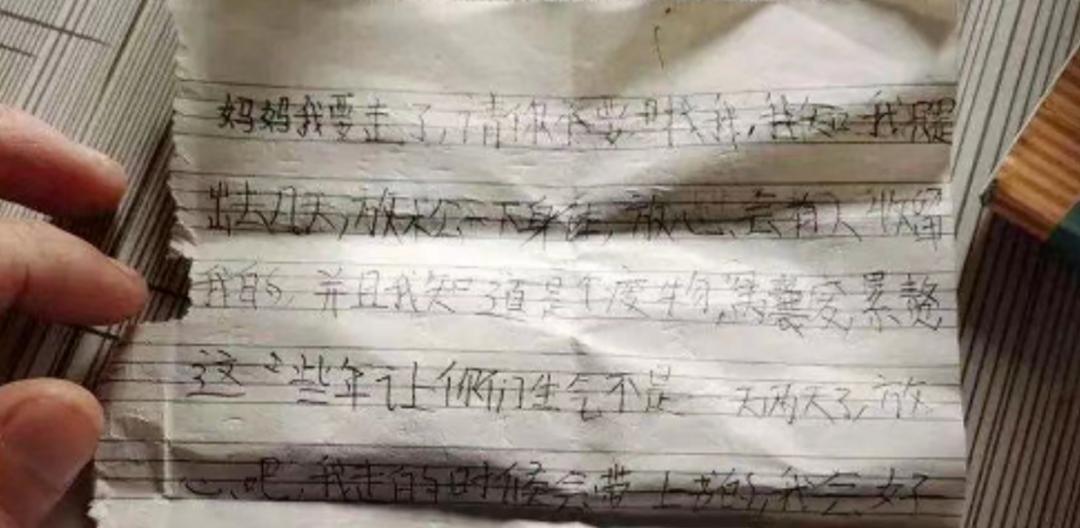 妈妈我要走了,请你不要寻找我,我知 我只是
出去几天,放松公一下身在,放心,会有人收留
我的,并且我知道是个废物,累
这些年让你们生气不是一天两天了,放
心吧,我走的时候会带上书的,我会好